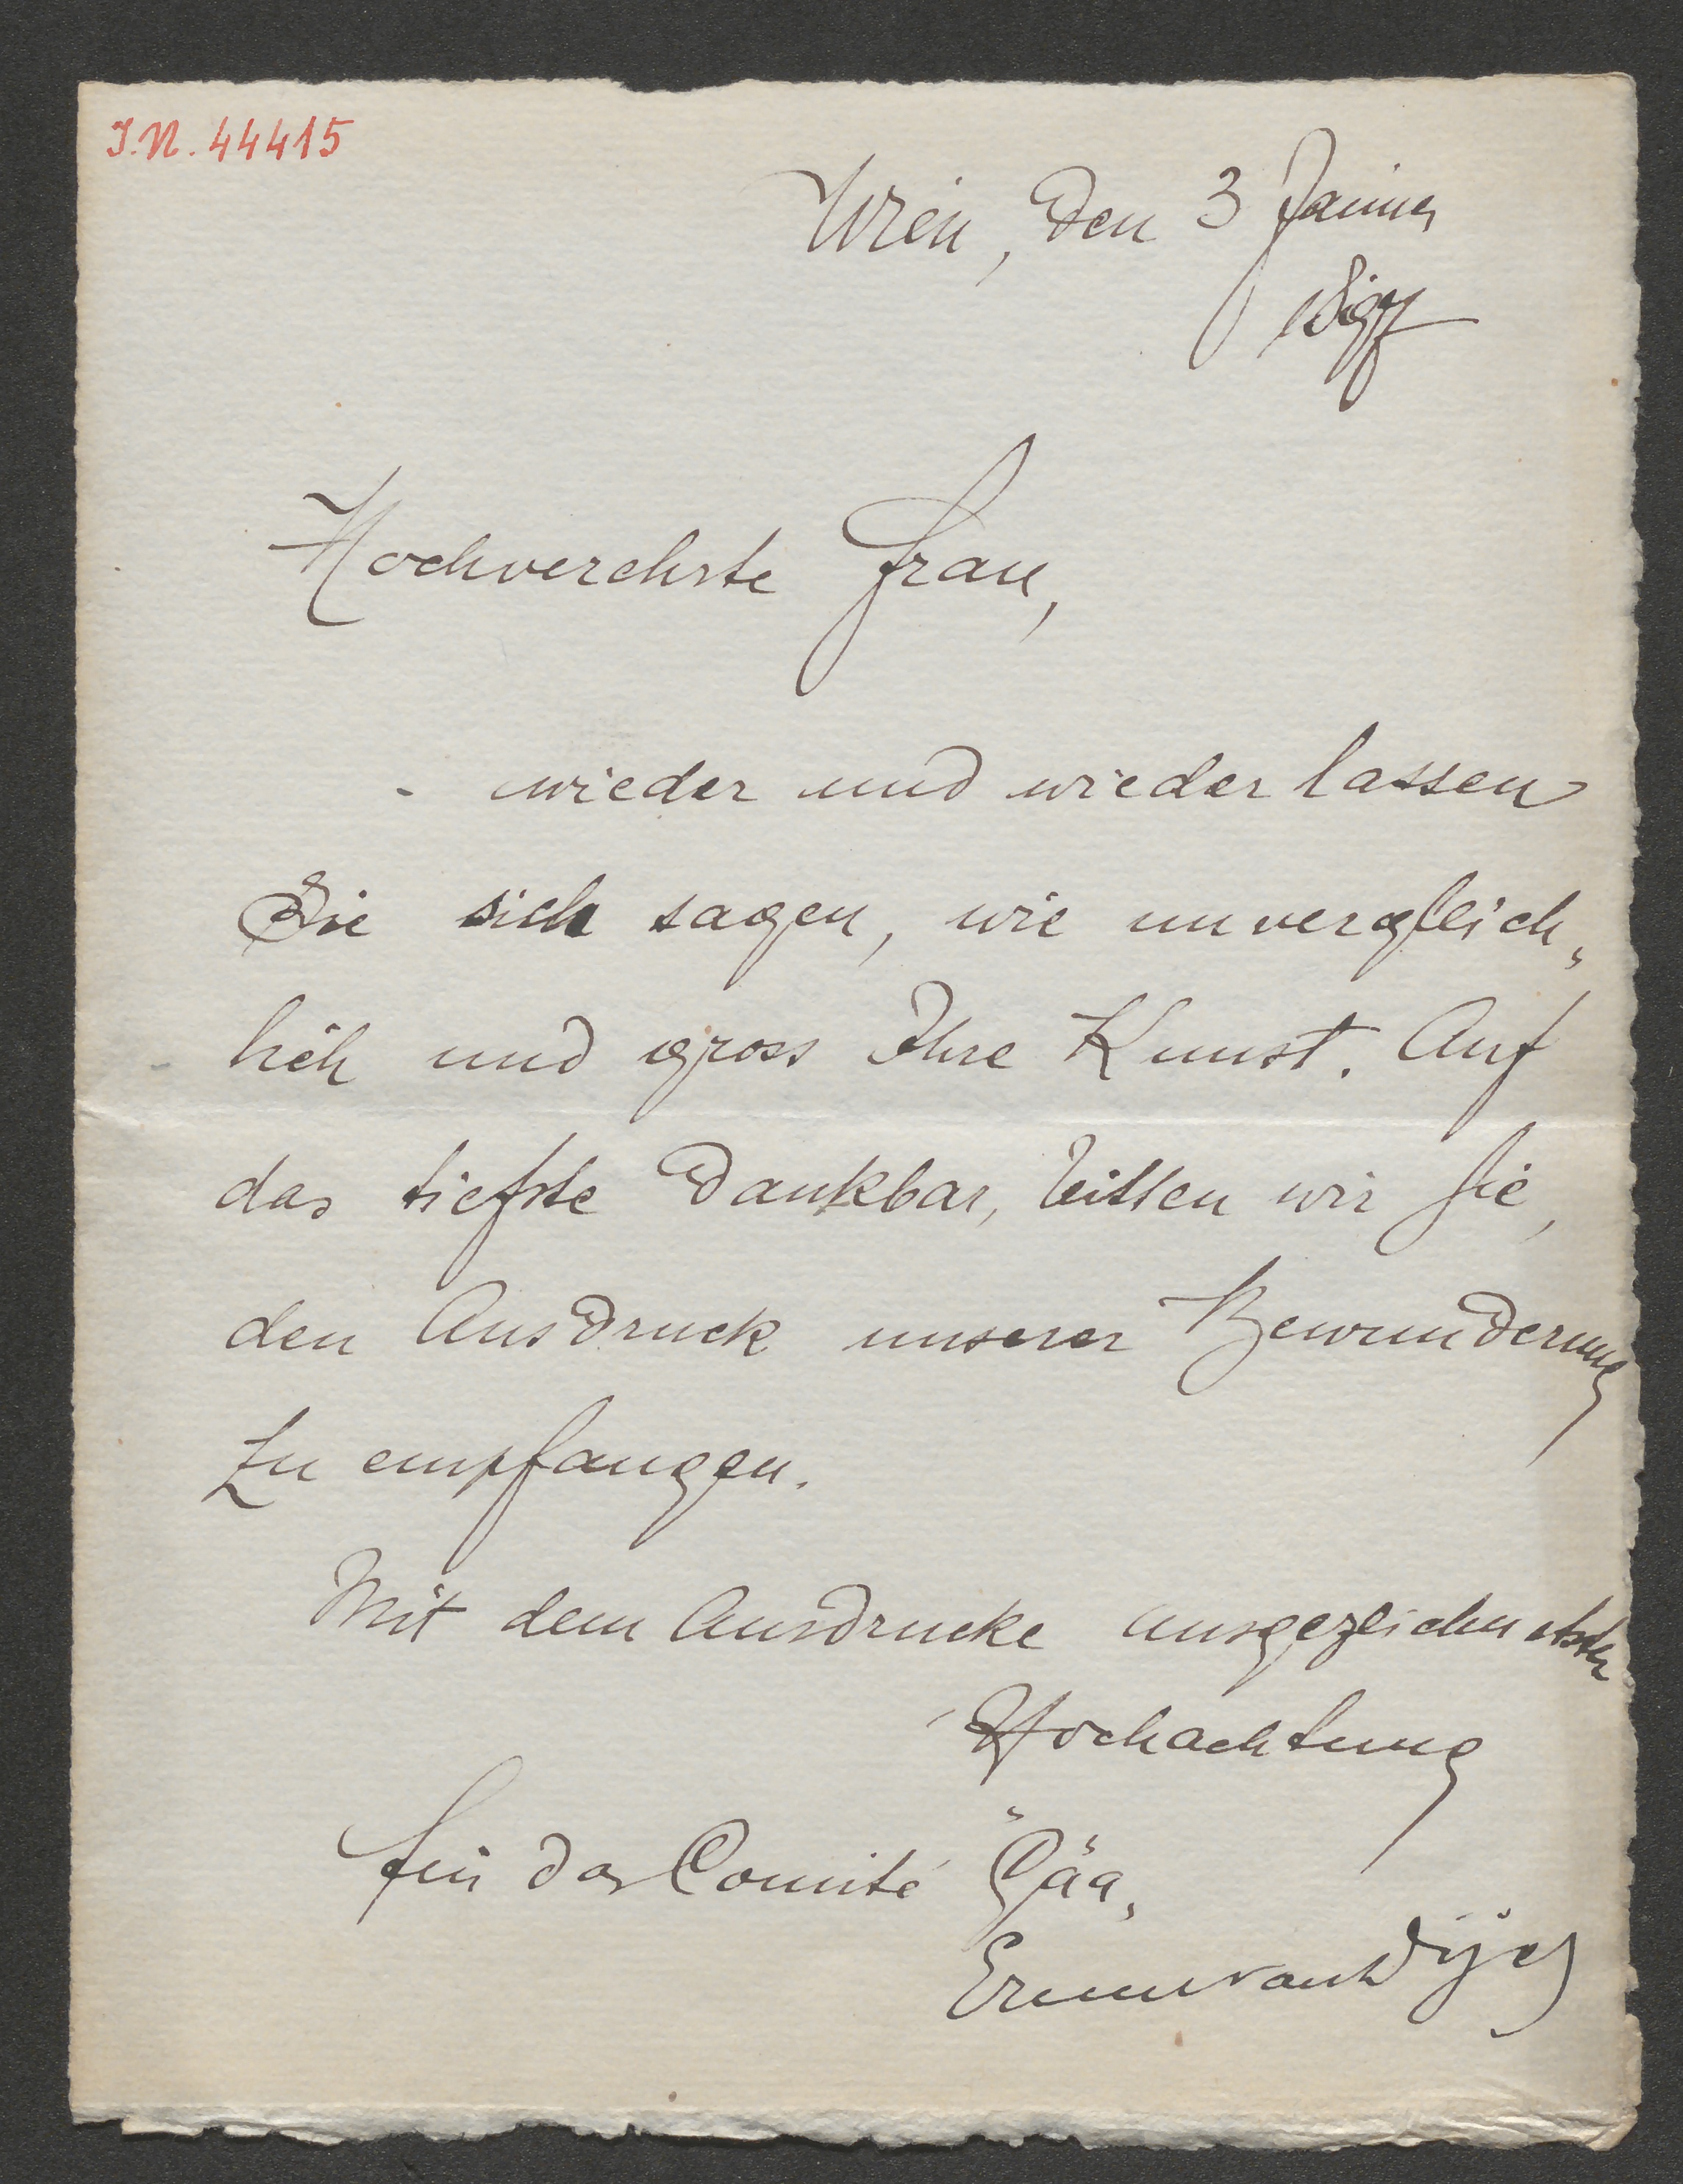 I.N. 44415
Wien, den 3 Jänner
Hochverehrte Frau,
wieder und wieder lassen
Sie sich sagen, wie unvergleich„
lich und gross Ihre Kunst. Auf
das tiefste dankbar, bitten wir Sie,
den Ausdruck unserer Bewunderung
zu empfangen.
Mit dem Ausdrucke ausgezeichnetster
Hochachtung
für das Comité "Gäa„